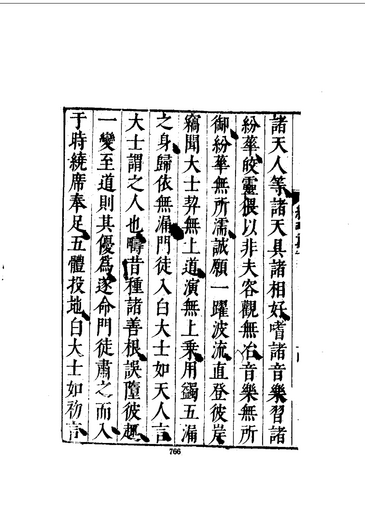 諸天人等諸天具諸相好嗜諸音樂習諸
紛華皎靈很以非夫客觀無冶音樂無所
御紛華無所濡誠願一躍波流直登彼岸
竊聞大士契無上道演無上乘用蠲五漏
之身歸依無漏門徒入白大士如天人言
大士謂之人也疇昔種諸善根誤墮彼趣
一變至道則其優為遂命門徒肅之而入
于時繞席奉足五體投地白大士如初言
766